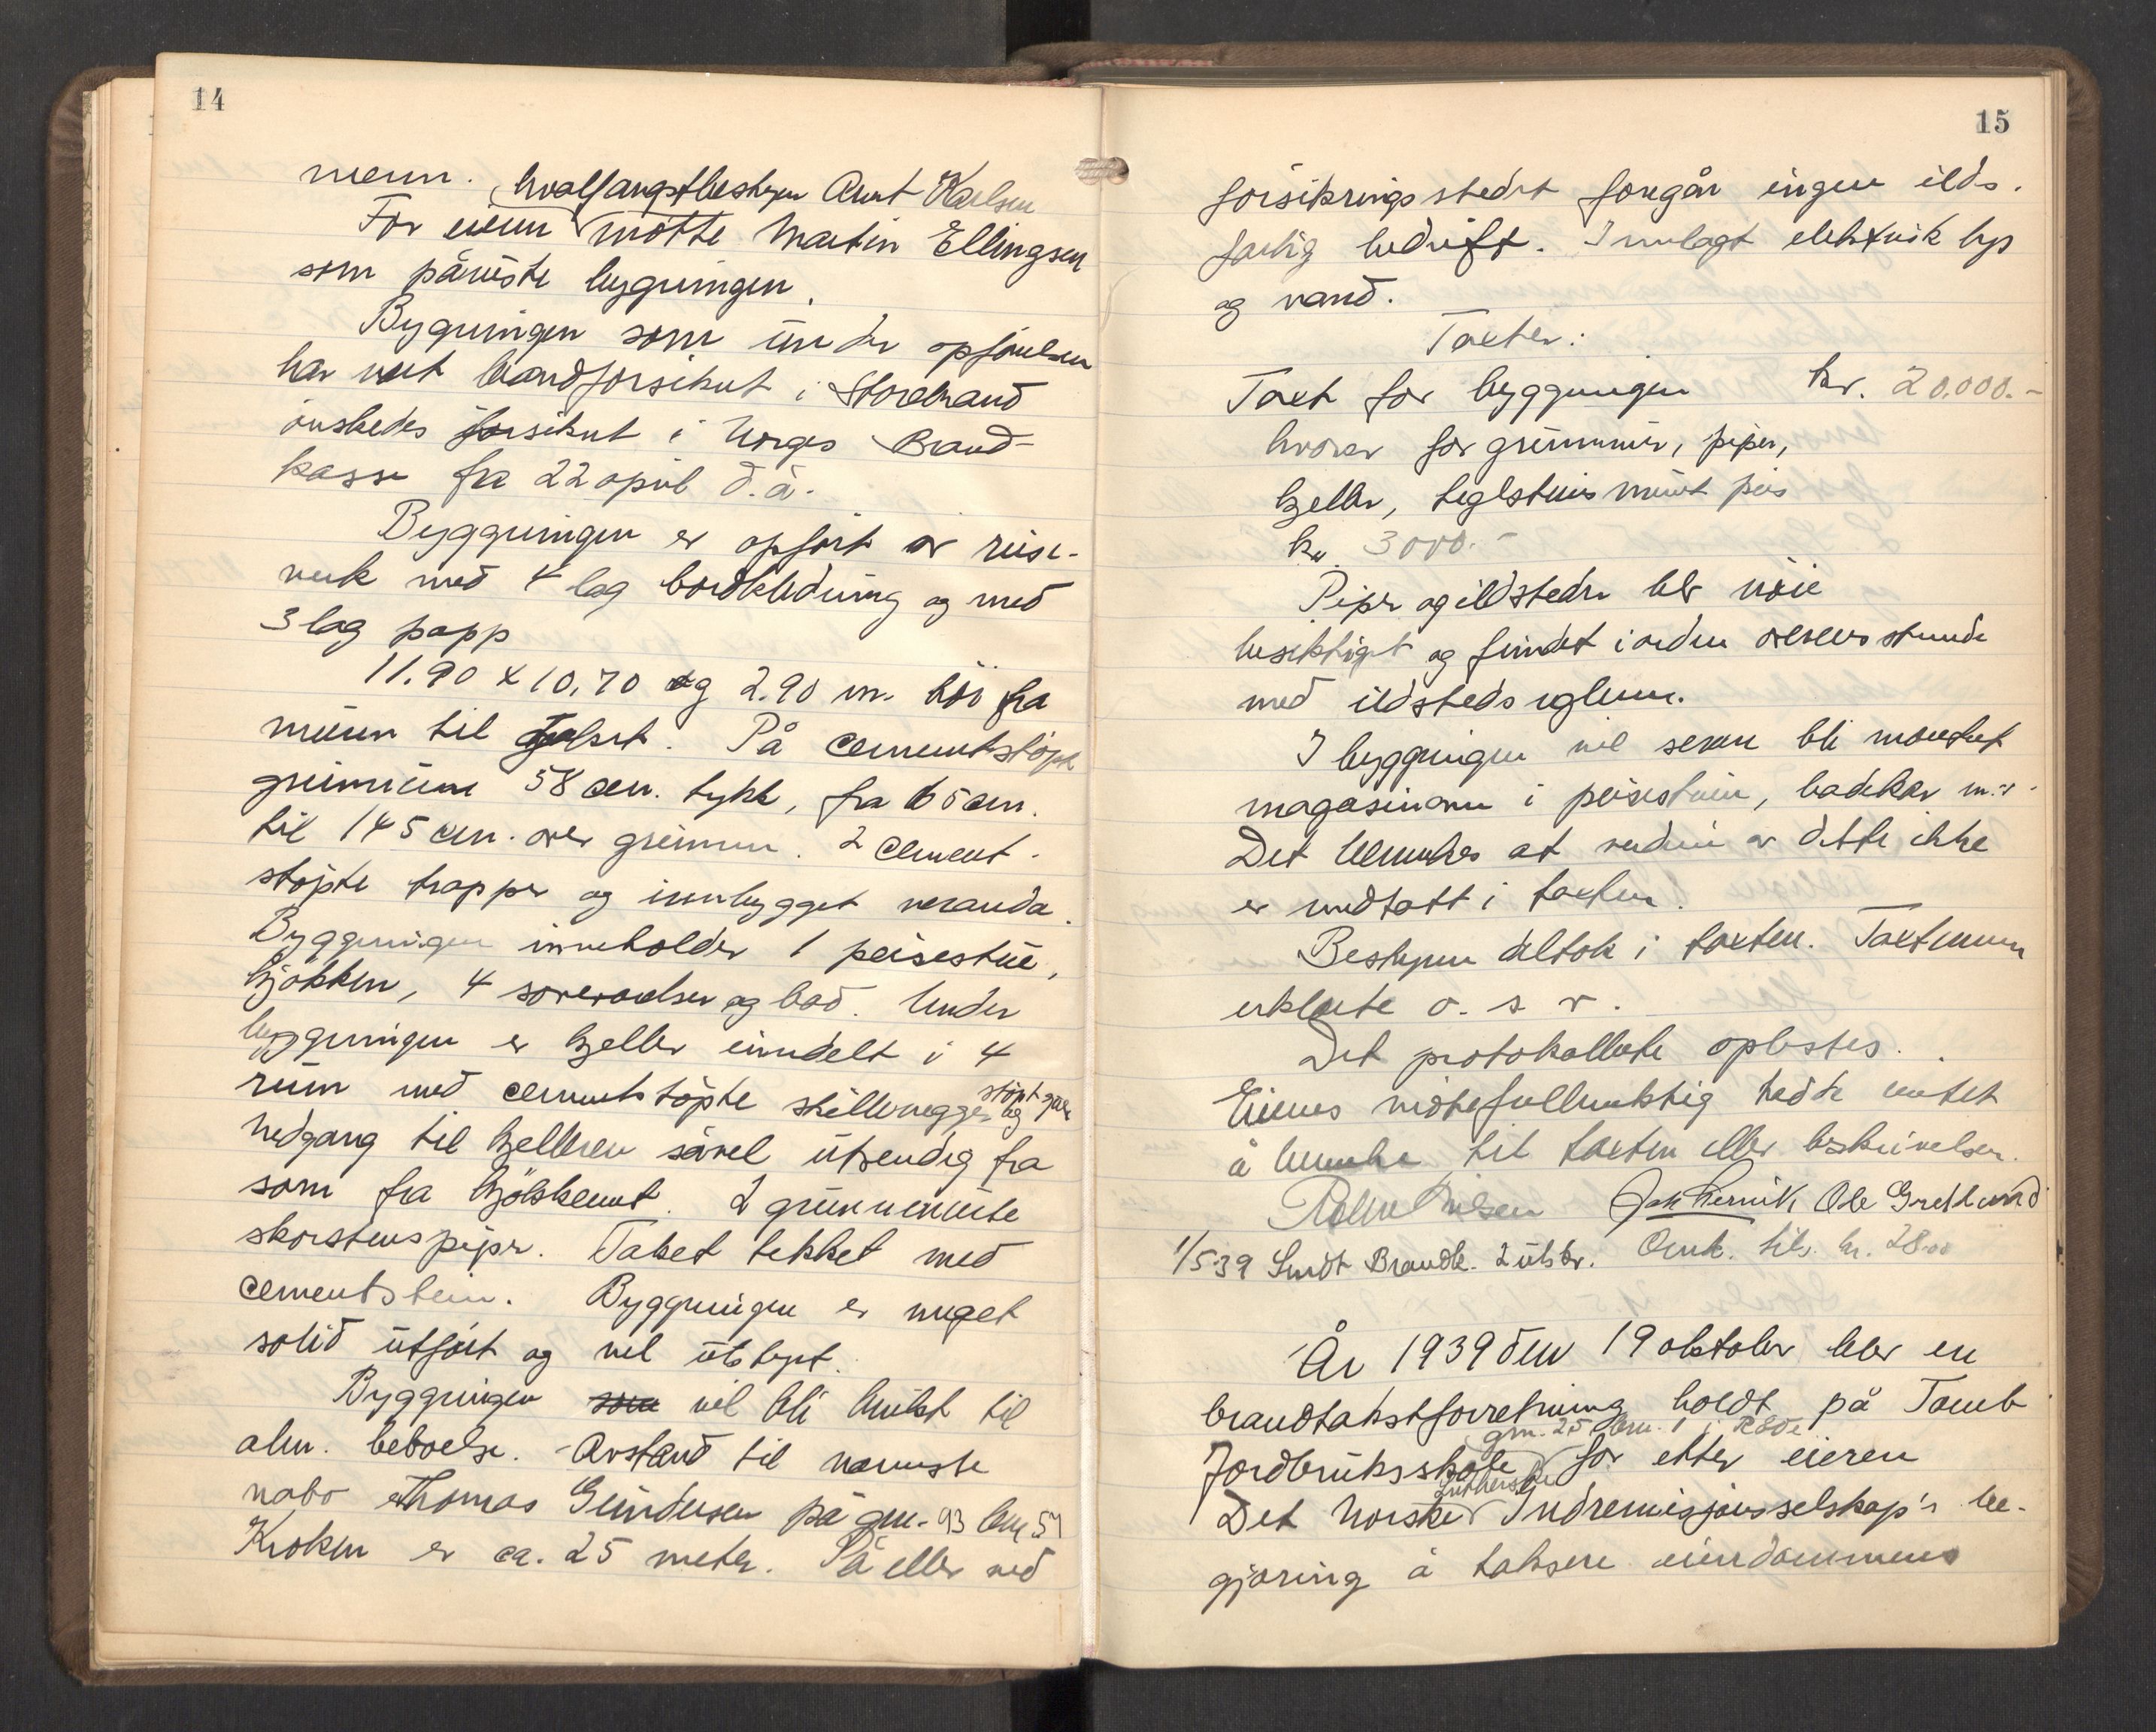 14
menn. hvalfangstbestyrer Arnt Karlsen
For eieren møtte Martin Ellingsen
som påviste bygningen.
Bygningen som under opførelsen
har vert brandforsikret i Storebrand
ønskedes forsikret i Norges Brand-
kasse fra 22 april d.å.
Byggningen er opført av reise-
verk med 4 lag bordkledning og med
3 lag papp
11.90 x 10.70 og 2.90 m. høi fra
muren til gesimset. På cementstøpt
grunnmur 58 cm. tykk, fra 65 cm.
til 145 cm. over grunnen. 2 cement-
støpte trapper og innbygget veranda.
Byggningen inneholder 1 peisestue,
kjøkken, 4 soveværelser og bad. Under
byggningen er kjeller inndelt i 4
rum med cementstøpte skillevegger og støpt gulv
Nedgang til kjelleren såvel utvendig fra
som fra kjøkkenet. 2 grunnmurte
skorstenspiper. Taket tekket med
cementstein. Byggningen er meget
solid utført og vel utstyrt.
Byggningen som vil bli brukt til
alm. beboelse. Avstand til nærmeste
nabo Thomas Gundersen på gnr. 93 bnr 57
Kroken er ca. 25 meter. På eller ved
15
forsikringsstedet foregår ingen ilds-
farlig bedrift. Innlagt elektrisk lys
og vand.
Taxter:
Taxt for byggningen kr. 20.000.-
hvorav for grunnmur, piper,
kjeller, teglsteinsmurt peis
kr. 3000.-
Piper og ildsteder blev nøie
besiktiget og fundet i orden overensstemmende
med ildstedsreglene.
I byggningen vil senere bli montert
magasinovn i peisestuen, badekar m.v.
Det bemerkes at verdien av dette ikke
er medtatt i taxten.
Bestyreren deltok i taxten. Taxtmennene
erklærte o.s.v.
Det protokollerte oplestes.
Eierens møtefullmektig hadde intet
å bemerke til taxten eller beskrivelsen.
Rolv Nilsen Joh Hernik Ole Grethund
1/5 39 Sendt Brandk. 2 utskr. Omk. tils. kr. 28.00
År 1939 den 19 oktober blev en
brandtakstforretning holdt på Tomb
gnr. 25 bnr. 1 i Råde
Jordbruksskole for etter eieren
Det Norske lutherske Indremisjonsselskap's be-
gjæring å taksere eiendommens